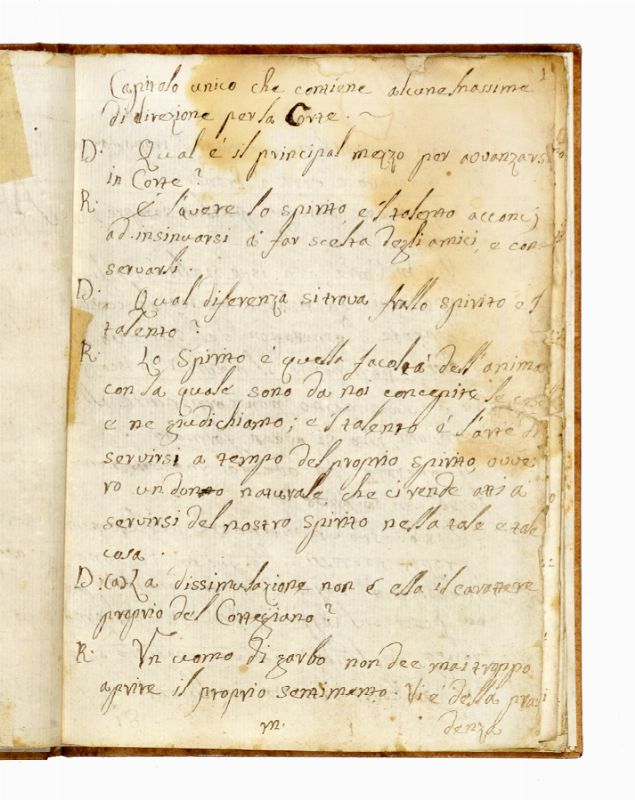 1
Capitolo unico che contiene alcune Massime
di direzione per la Corte. ~
D: Qual' è il principal mezzo per avvanzarsi
in Corte?
R: È l'avere lo spirito, e 'l talento acconcj
ad insinuarsi à far scelta degli amici, e con=
servarli.
D: Qual diferenza si trova frallo spirito e 'l
talento?
R: Lo Spirito è quella facoltà dell'anima
con la quale sono da noi concepite le cose
e ne giudichiamo; e 'l talento è l'arte di
servirsi a tempo del proprio spirito, ovve-
ro un donno naturale, che ci rende atti a
servirsi del nostro Spirito nella tale e tale
cosa.
D: (a) La dissimulazione non è ella il carattere
proprio del Cortegiano?
R: Un uomo di garbo non dee mai troppo
aprire il proprio sentimento. Vi è della pru
denza